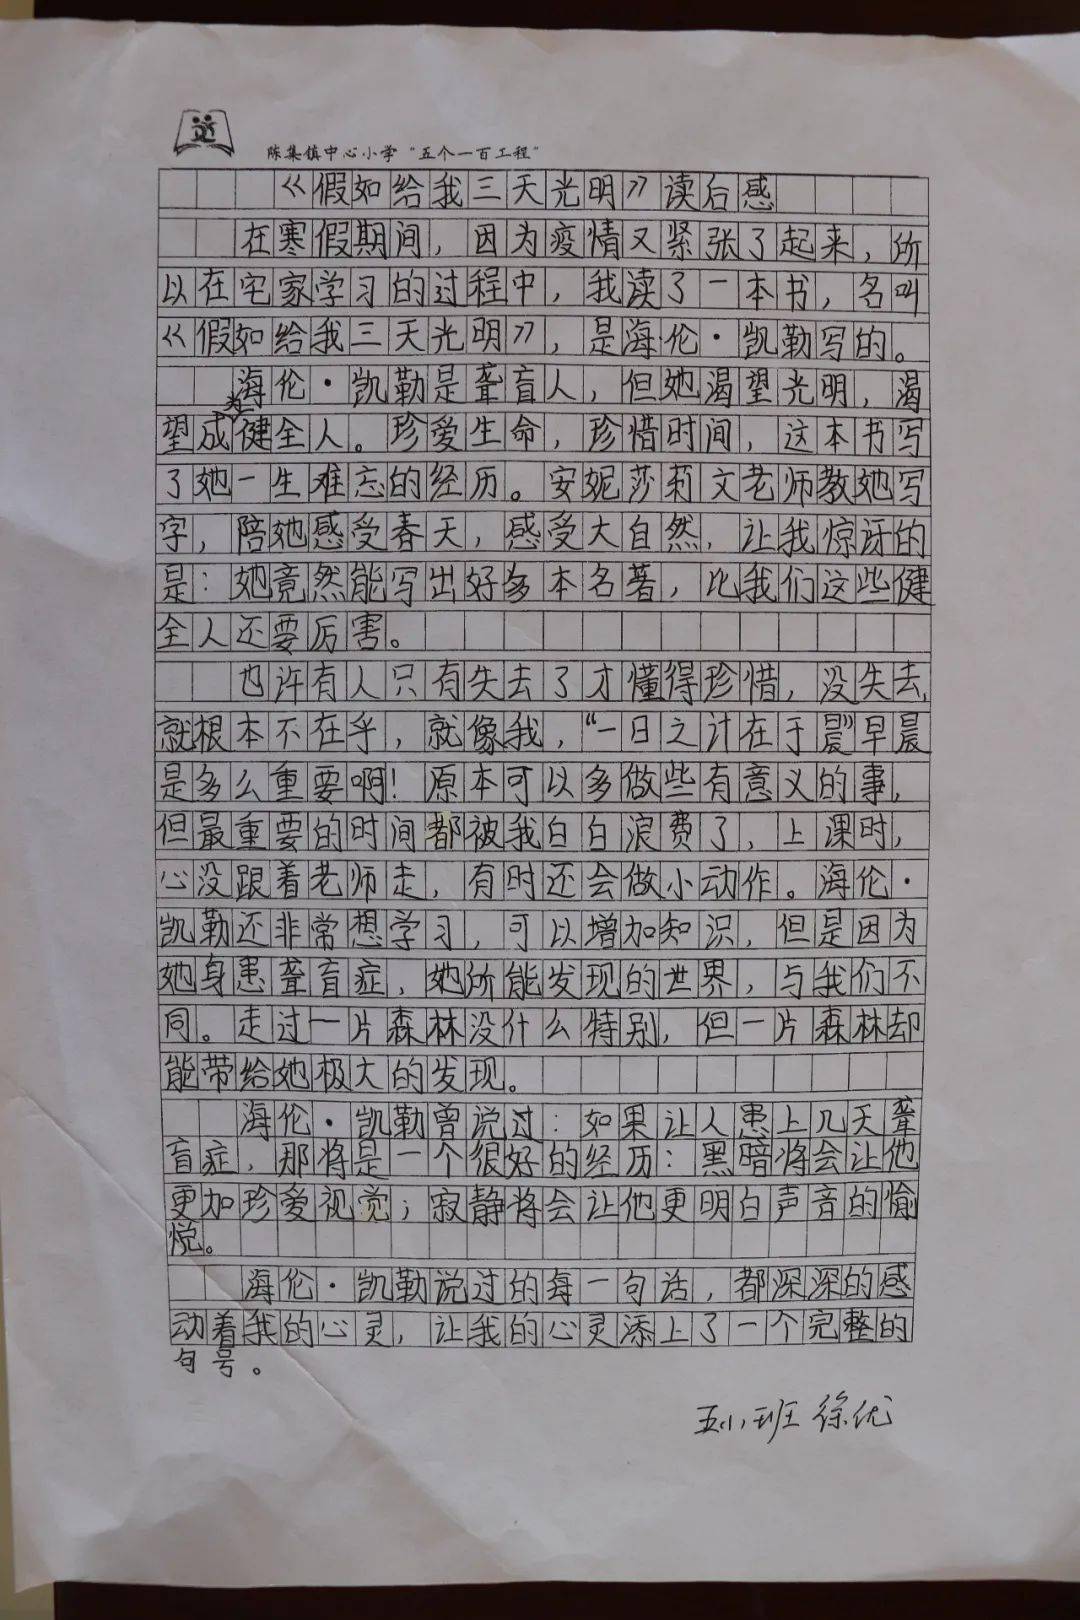 陈集镇中心小学“五个一百工程”
《假如给我三天光明》读后感
在寒假期间，因为疫情又紧张了起来，所
以在宅家学习的过程中，我读了一本书，名叫
《假如给我三天光明》，是海伦·凯勒写的。
海伦·凯勒是聋盲人，但她渴望光明，渴
望成为健全人。珍爱生命，珍惜时间，这本书写
了她一生难忘的经历。安妮莎莉文老师教她写
字，陪她感受春天，感受大自然，让我惊讶的
是：她竟然能写出好多本名著，比我们这些健
全人还要厉害。
也许有人只有失去了才懂得珍惜，没失去，
就根本不在乎，就像我，“一日之计在于晨”早晨
是多么重要啊！原本可以多做些有意义的事，
但最重要的时间都被我白白浪费了，上课时，
心没跟着老师走，有时还会做小动作。海伦·
凯勒还非常想学习，可以增加知识，但是因为
她身患聋盲症，她所能发现的世界，与我们不
同。走过一片森林没什么特别，但一片森林却
能带给她极大的发现。
海伦·凯勒曾说过：如果让人患上几天聋
盲症，那将是一个很好的经历：黑暗将会让他
更加珍爱视觉；寂静将会让他更明白声音的愉
悦。
海伦·凯勒说过的每一句话，都深深的感
动着我的心灵，让我的心灵添上了一个完整的
句号。
班 徐优